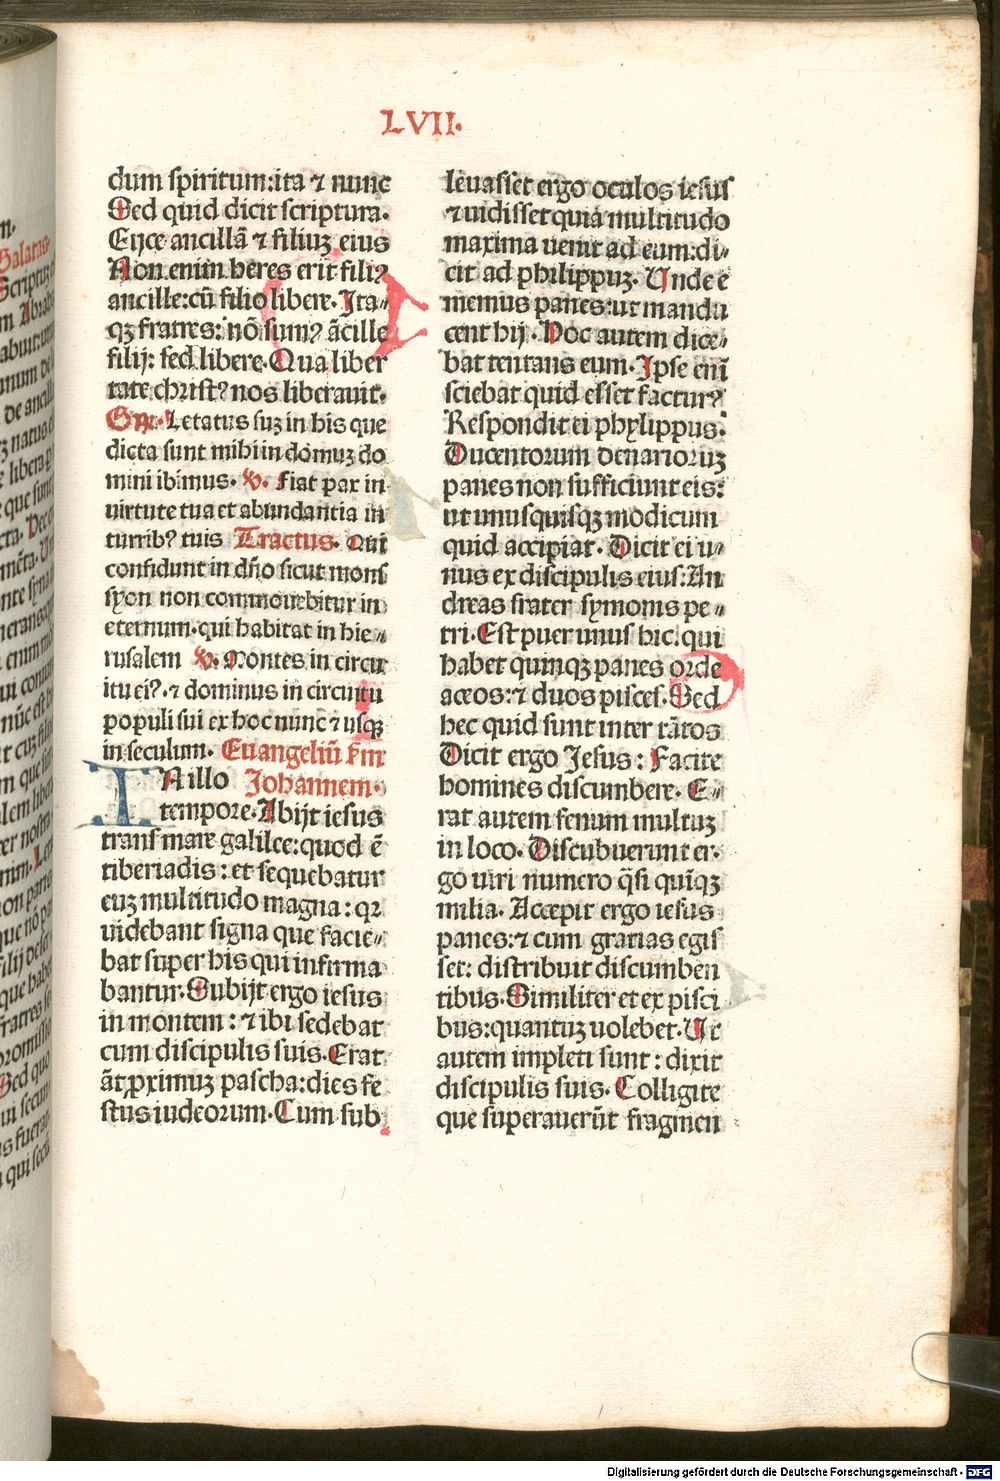 LVII.
dum spiritum:ita ⁊ nunc
Sed quid dicit scriptura.
Eijce ancillã ⁊ filiuꝫ eius
Non enim heres erit filiꝰ
ancille:cũ filio libere. Ita⸗
qꝫ fratres: nõ sumꝰ ãcille
filij: sed libere. Qua liber
tate christꝰ nos liberauit.
Gr̃. Letatus suꝫ in his que
dicta sunt mihi in domuꝫ do
mini ibimus. ℣. Fiat pax in
uirtute tua et abundantia in
turribꝰ tuis Tractus. Qui
confidunt in dño sicut mons
syon non commouebitur in
eternum.qui habitat in hie⸗
rusalem ℣. Montes in circu
itu eiꝰ.⁊ dominus in circuitu
populi sui ex hoc nunc ⁊ usqꝫ
in seculum. Euangeliũ ẜm
IN illo Johannem.
tempore. Abijt iesus
trans mare galilee:quod ẽ
tiberiadis: et sequebatur
euꝫ multitudo magna: qꝛ
uidebant signa que facie⸗
bat super his qui infirma
bantur. Subijt ergo iesus
in montem: ⁊ ibi sedebat
cum discipulis suis. Erat
ãt ꝓximuꝫ pascha:dies fe
stus iudeorum. Cum sub
leuasset ergo oculos iesus
⁊ uidisset quia multitudo
maxima uenit ad eum:di⸗
cit ad philippuꝫ. Unde e
memus panes:ut mandu
cent hij. Hoc autem dice⸗
bat tentans eum. Ipse eni᷑
sciebat quid esset facturꝰ
Respondit ei phylippus:
Ducentorum denarioruꝫ
panes non sufficiunt eis:
ut unusquisqꝫ modicum
quid accipiat. Dicit ei u⸗
nus ex discipulis eius: An
dreas frater symonis pe⸗
tri. Est puer unus hic: qui
habet quinqꝫ panes orde
aceos: ⁊ duos pisces. Sed
hec quid sunt inter tãtos
Dicit ergo Jesus: Facite
homines discumbere. E⸗
rat autem fenum multuꝫ
in loco. Discubuerunt er⸗
go uiri numero q̃si quĩqꝫ
milia. Accepit ergo iesus
panes: ⁊ cum gratias egis
set: distribuit discumben
tibus. Similiter et ex pisci
bus:quantuꝫ uolebet. Ut
autem impleti sunt: dixit
discipulis suis. Colligite
que superauerũt fragmen
Digitalisierung gefördert durch die Deutsche Forschungsgemeinschaft - DFG